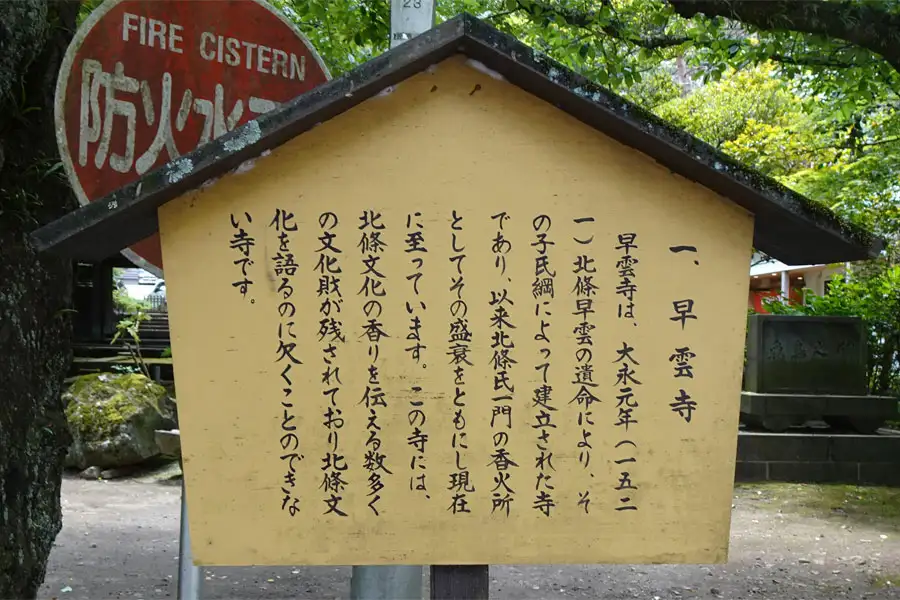 23
FIRE CISTERN
防火水
一、早雲寺
早雲寺は、大永元年(一五二
一)北條早雲の遺命により、そ
の子氏綱によって建立された寺
であり、以来北條氏一門の香火所
としてその盛衰をともにし現在
に至っています。この寺には、
北條文化の香りを伝える数多く
の文化財が残されており北條文
化を語るのに欠くことのできな
い寺です。